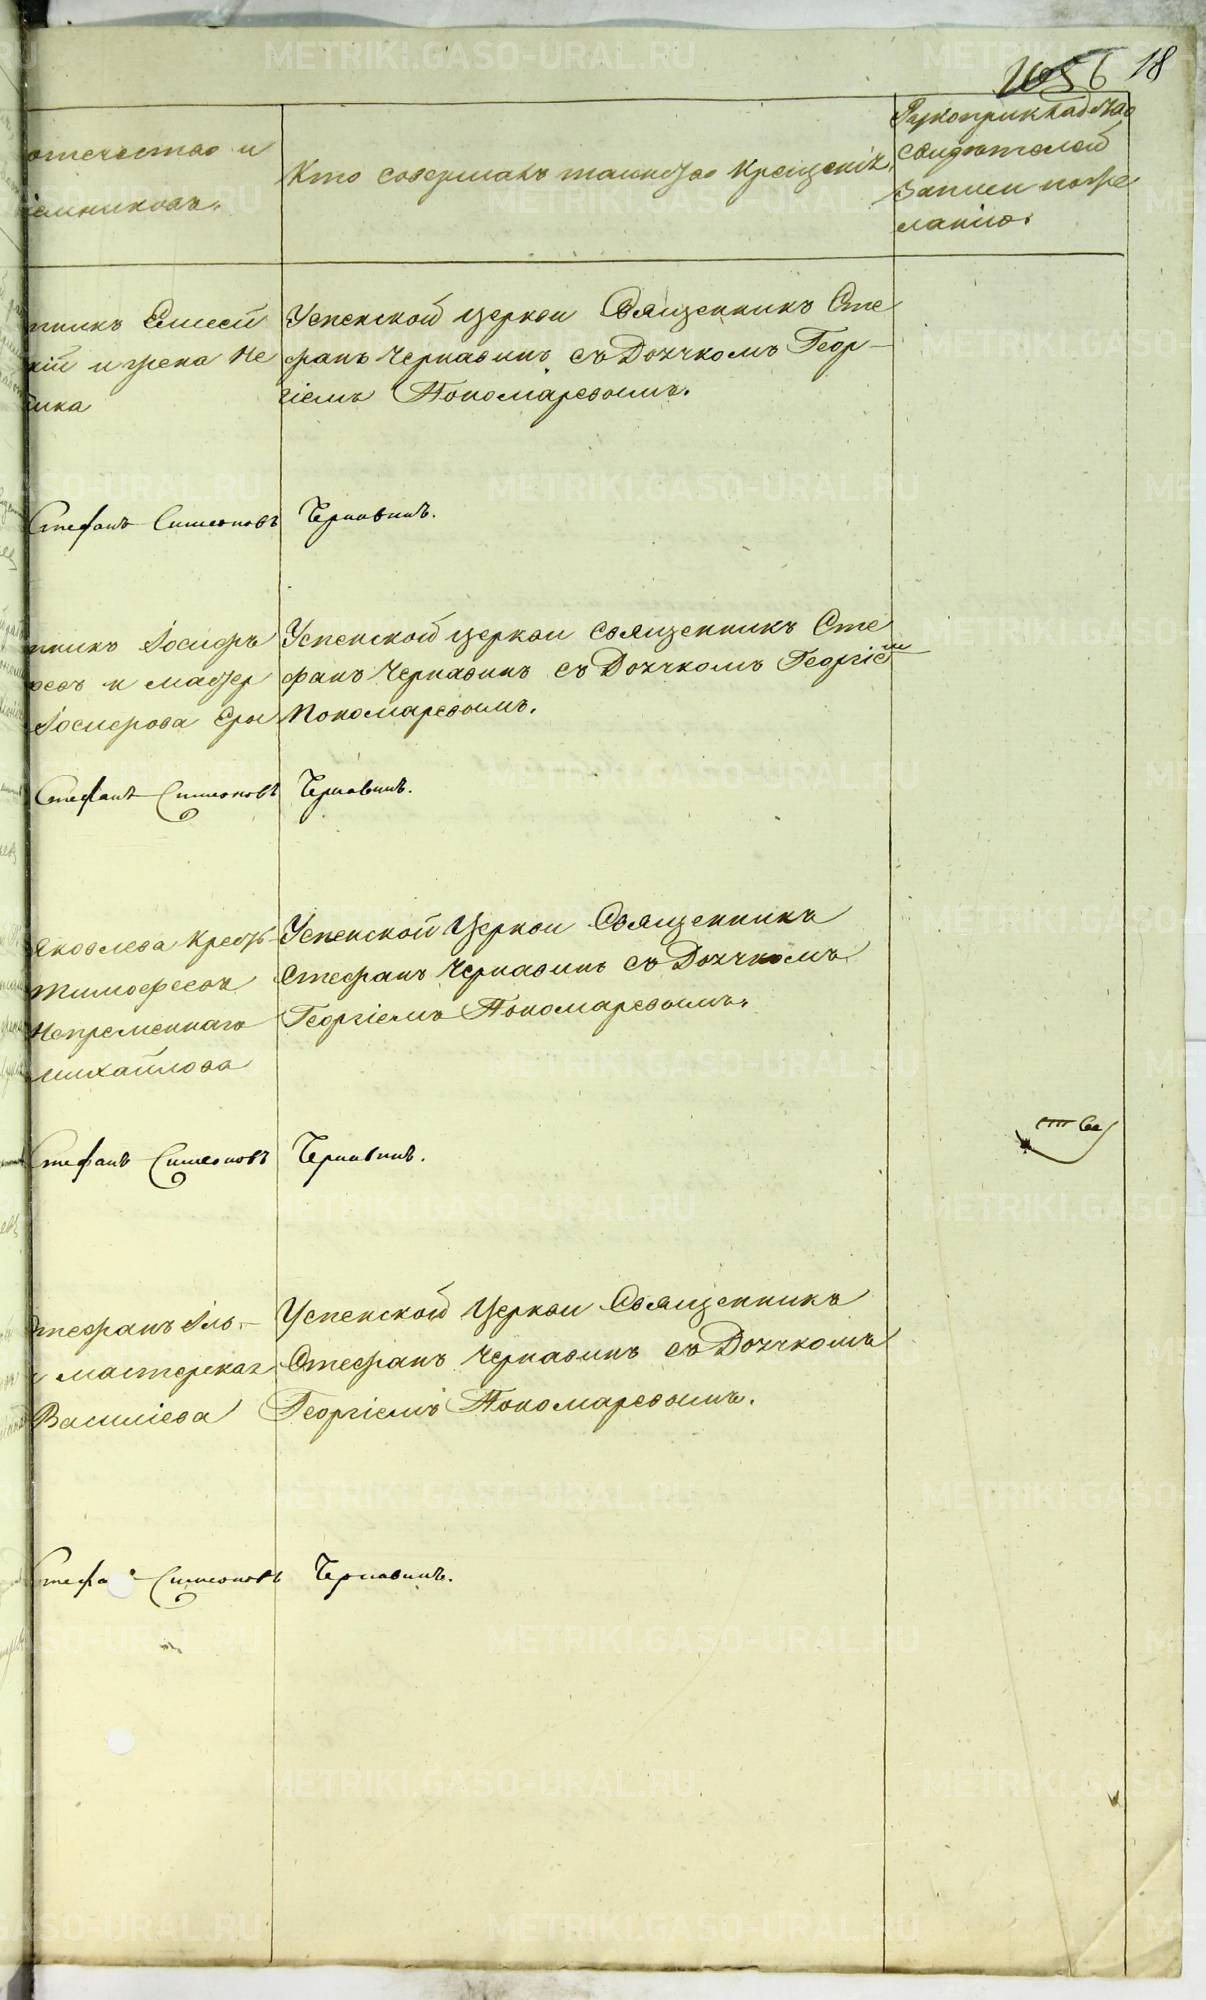 56 18
отечество и
емниковъ.
Кто совершалъ таинство Крещенія.
Рукоприкладство
свидѣтелей
записи по же
ланію.
никъ Елисей
кій и жена Не
Успенской церкви Священникъ Сте
фанъ Чернавинъ съ Дьячкомъ Геор-
гіемъ Пономаревымъ.
Стефанъ Симеоновъ Чернавинъ.
никъ Іосифъ
евъ и мастер
Іосифова Еры
Успенской церкви священникъ Сте
фанъ Чернавинъ съ Дьячкомъ Георгіемъ
Пономаревымъ.
Стефанъ Симеоновъ Чернавинъ.
Яковлева Кресть-
Тимофеевъ
Непременнаго
Михайлова
Успенской Церкви Священникъ
Стефанъ Чернавинъ съ Дьячкомъ
Георгіемъ Пономаревымъ.
Стефанъ Симеоновъ Чернавинъ.
Стефанъ Иль-
мастерская
Василіева
Успенской Церкви Священникъ
Стефанъ Чернавинъ съ Дьячкомъ
Георгіемъ Пономаревымъ.
Стефанъ Симеоновъ Чернавинъ.
METRIKI.GASO-URAL.RU